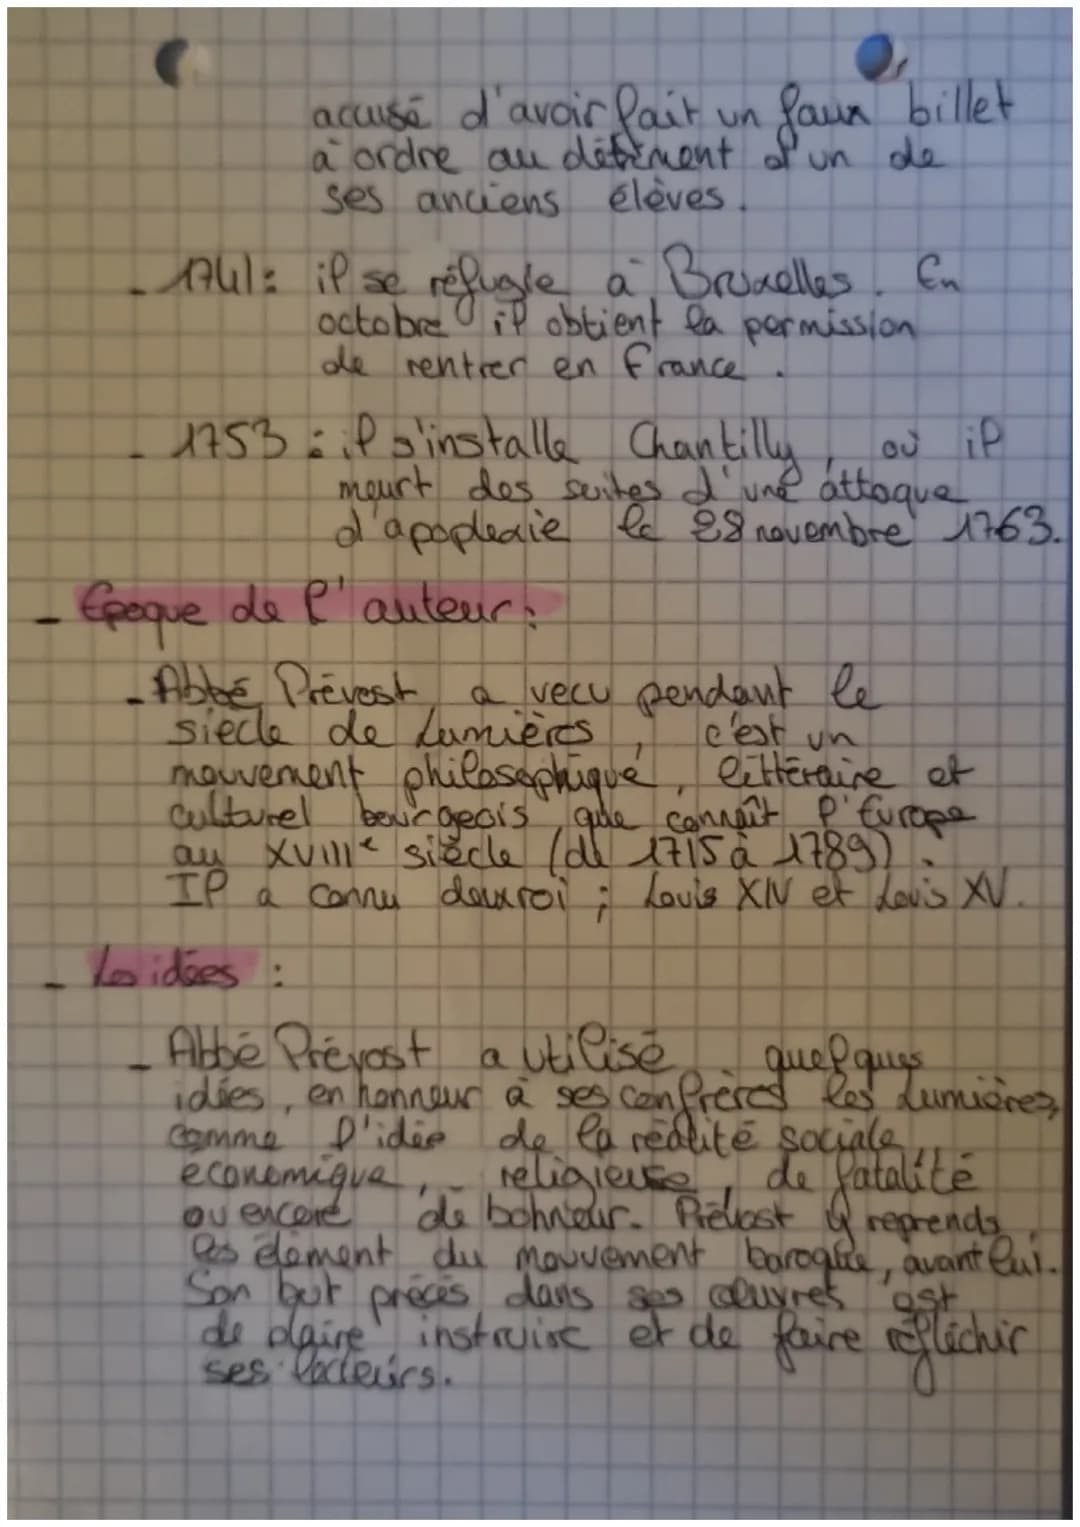 accusé d'avoir fait un faux billet
à ordre au détriment d'un de
ses anciens élèves.
- 1741 : il se réfugie à Bruxelles. En
octobre il obtient la permission
de rentrer en France.
- 1753 : il s'installe Chantilly, où il
meurt des suites d'une attaque
d'apoplexie le 28 novembre 1763.
- Epoque de l'auteur :
- Abbé Prévost, a vecu pendant le
siècle de Lumières, c'est un
mouvement philosophique, littéraire et
culturel bourgeois que connaît l'Europe
au XVIIIe siècle (de 1715 à 1789).
Il a connu deux roi ; Louis XIV et Louis XV.
- Les idées :
- Abbé Prévost a utilisé quelques
idées, en honneur à ses confrères les Lumières,
comme l'idée de la réalité sociale,
economique, religieuse, de fatalité
ou encore de bohneur. Prévost y reprends
les élément du mouvement baroque, avant lui.
Son but précis dans ses œuvres est
de plaire instruire et de faire réfléchir
ses lecteurs.